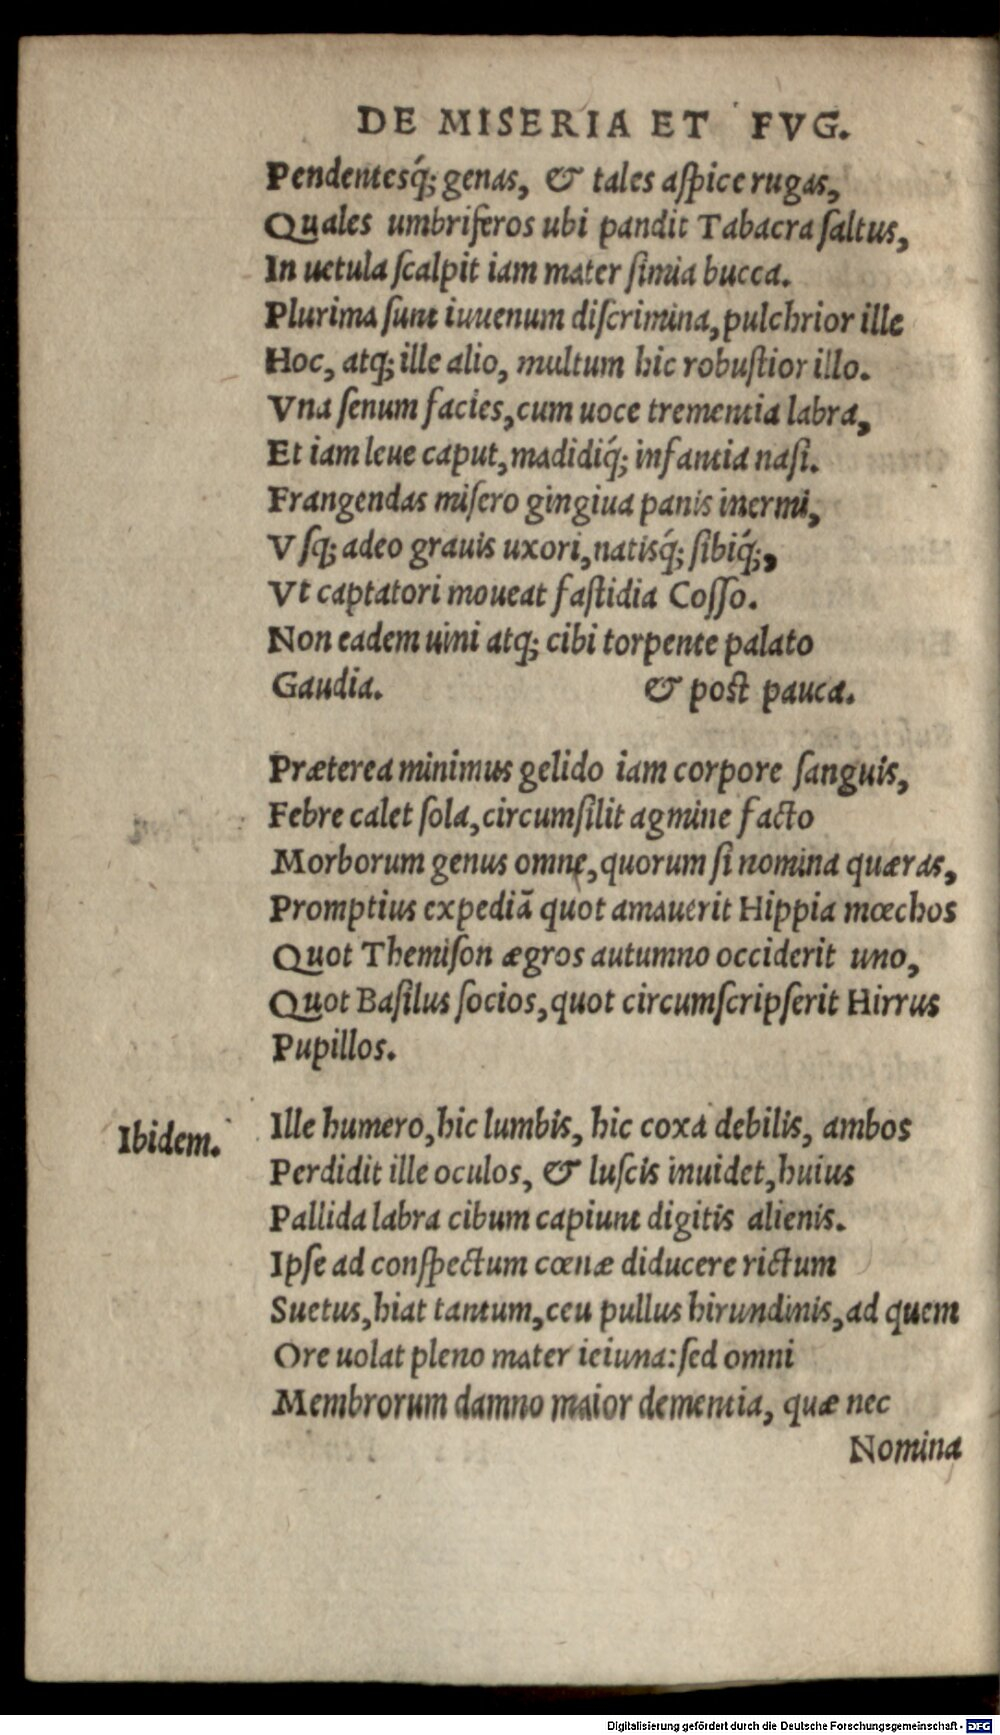 DE MISERIA ET FVG.
Pendentesq́; genas, & tales aſpice rugas,
Quales umbriferos ubi pandit Tabacra ſaltus,
In uetula ſcalpit iam mater ſimia bucca.
Plurima ſunt iuuenum diſcrimina, pulchrior ille
Hoc, atq; ille alio, multum hic robuſtior illo.
Vna ſenum facies, cum uoce trementia labra,
Et iam leue caput, madidiq́; infantia naſi.
Frangendas miſero gingiua panis inermi,
Vſq; adeo grauis uxori, natisq́; ſibiq́;,
Vt captatori moueat faſtidia Coſſo.
Non eadem uini atq; cibi torpente palato
Gaudia. & poſt pauca.
Præterea minimus gelido iam corpore ſanguis,
Febre calet ſola, circumſilit agmine facto
Morborum genus omne, quorum ſi nomina quæras,
Promptius expediã quot amauerit Hippia mœchos
Quot Themiſon ægros autumno occiderit uno,
Quot Baſilus ſocios, quot circumſcripſerit Hirrus
Pupillos.
Ibidem. Ille humero, hic lumbis, hic coxa debilis, ambos
Perdidit ille oculos, & luſcis inuidet, huius
Pallida labra cibum capiunt digitis alienis.
Ipſe ad conſpectum cœnæ diducere rictum
Suetus, hiat tantum, ceu pullus hirundinis, ad quem
Ore uolat pleno mater ieiuna: ſed omni
Membrorum damno maior dementia, quæ nec
Nomina
Digitalisierung gefördert durch die Deutsche Forschungsgemeinschaft - DFG